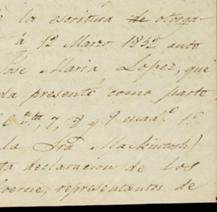 la escritura de otorga
á 12 Marzo 1842 ante
José Maria Lopez, que
da presente como parte
7, 3 y 9 quad.º 1º
la Sra Mackintosh)
ta declaracion de los
representantes de